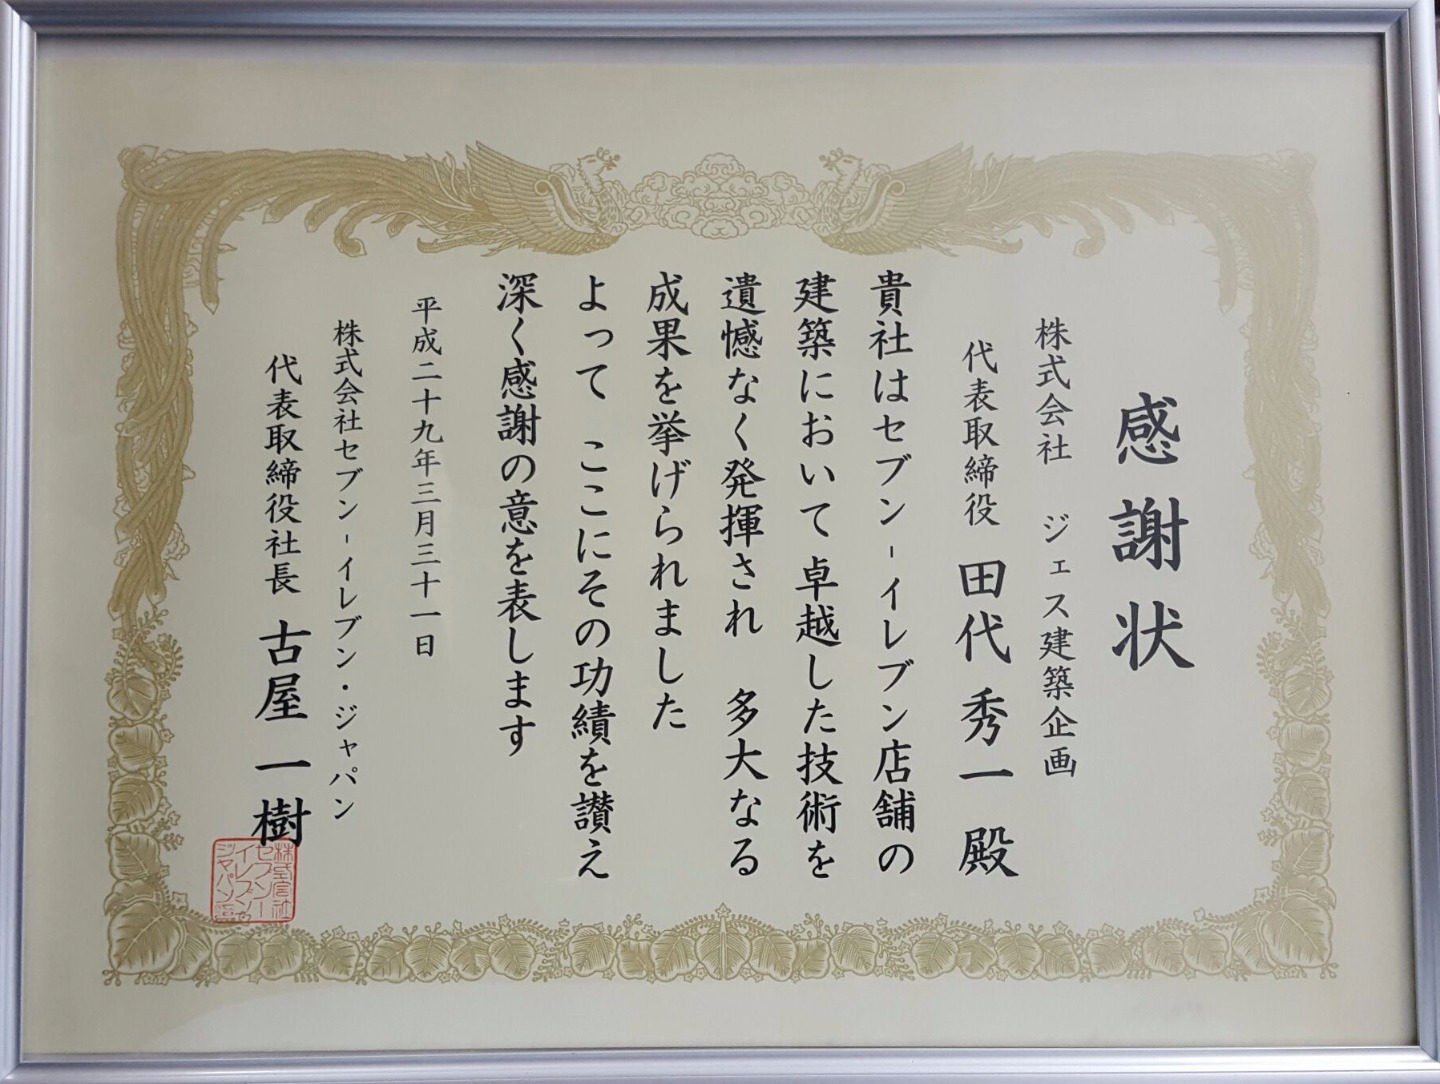 感謝状
株式会社 ジェス建築企画
代表取締役 田代秀一 殿
貴社はセブン-イレブン店舗の
建築において卓越した技術を
遺憾なく発揮され 多大なる
成果を挙げられました
よって ここにその功績を讃え
深く感謝の意を表します
平成二十九年三月三十一日
株式会社セブン-イレブン・ジャパン
代表取締役社長 古屋一樹
株式会社
セブンー
イレブン
ジャパン